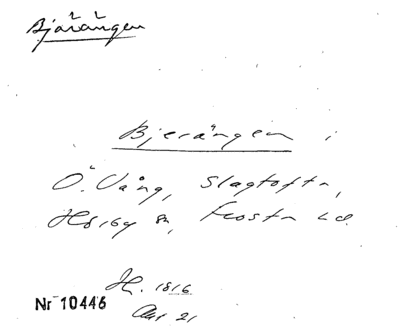 Bjärängen
Bjerängen i
Ö. Vång, Slagtofta,
Hörby sn, Frosta hd.
H. 1816
Akt 21
Nr 10446